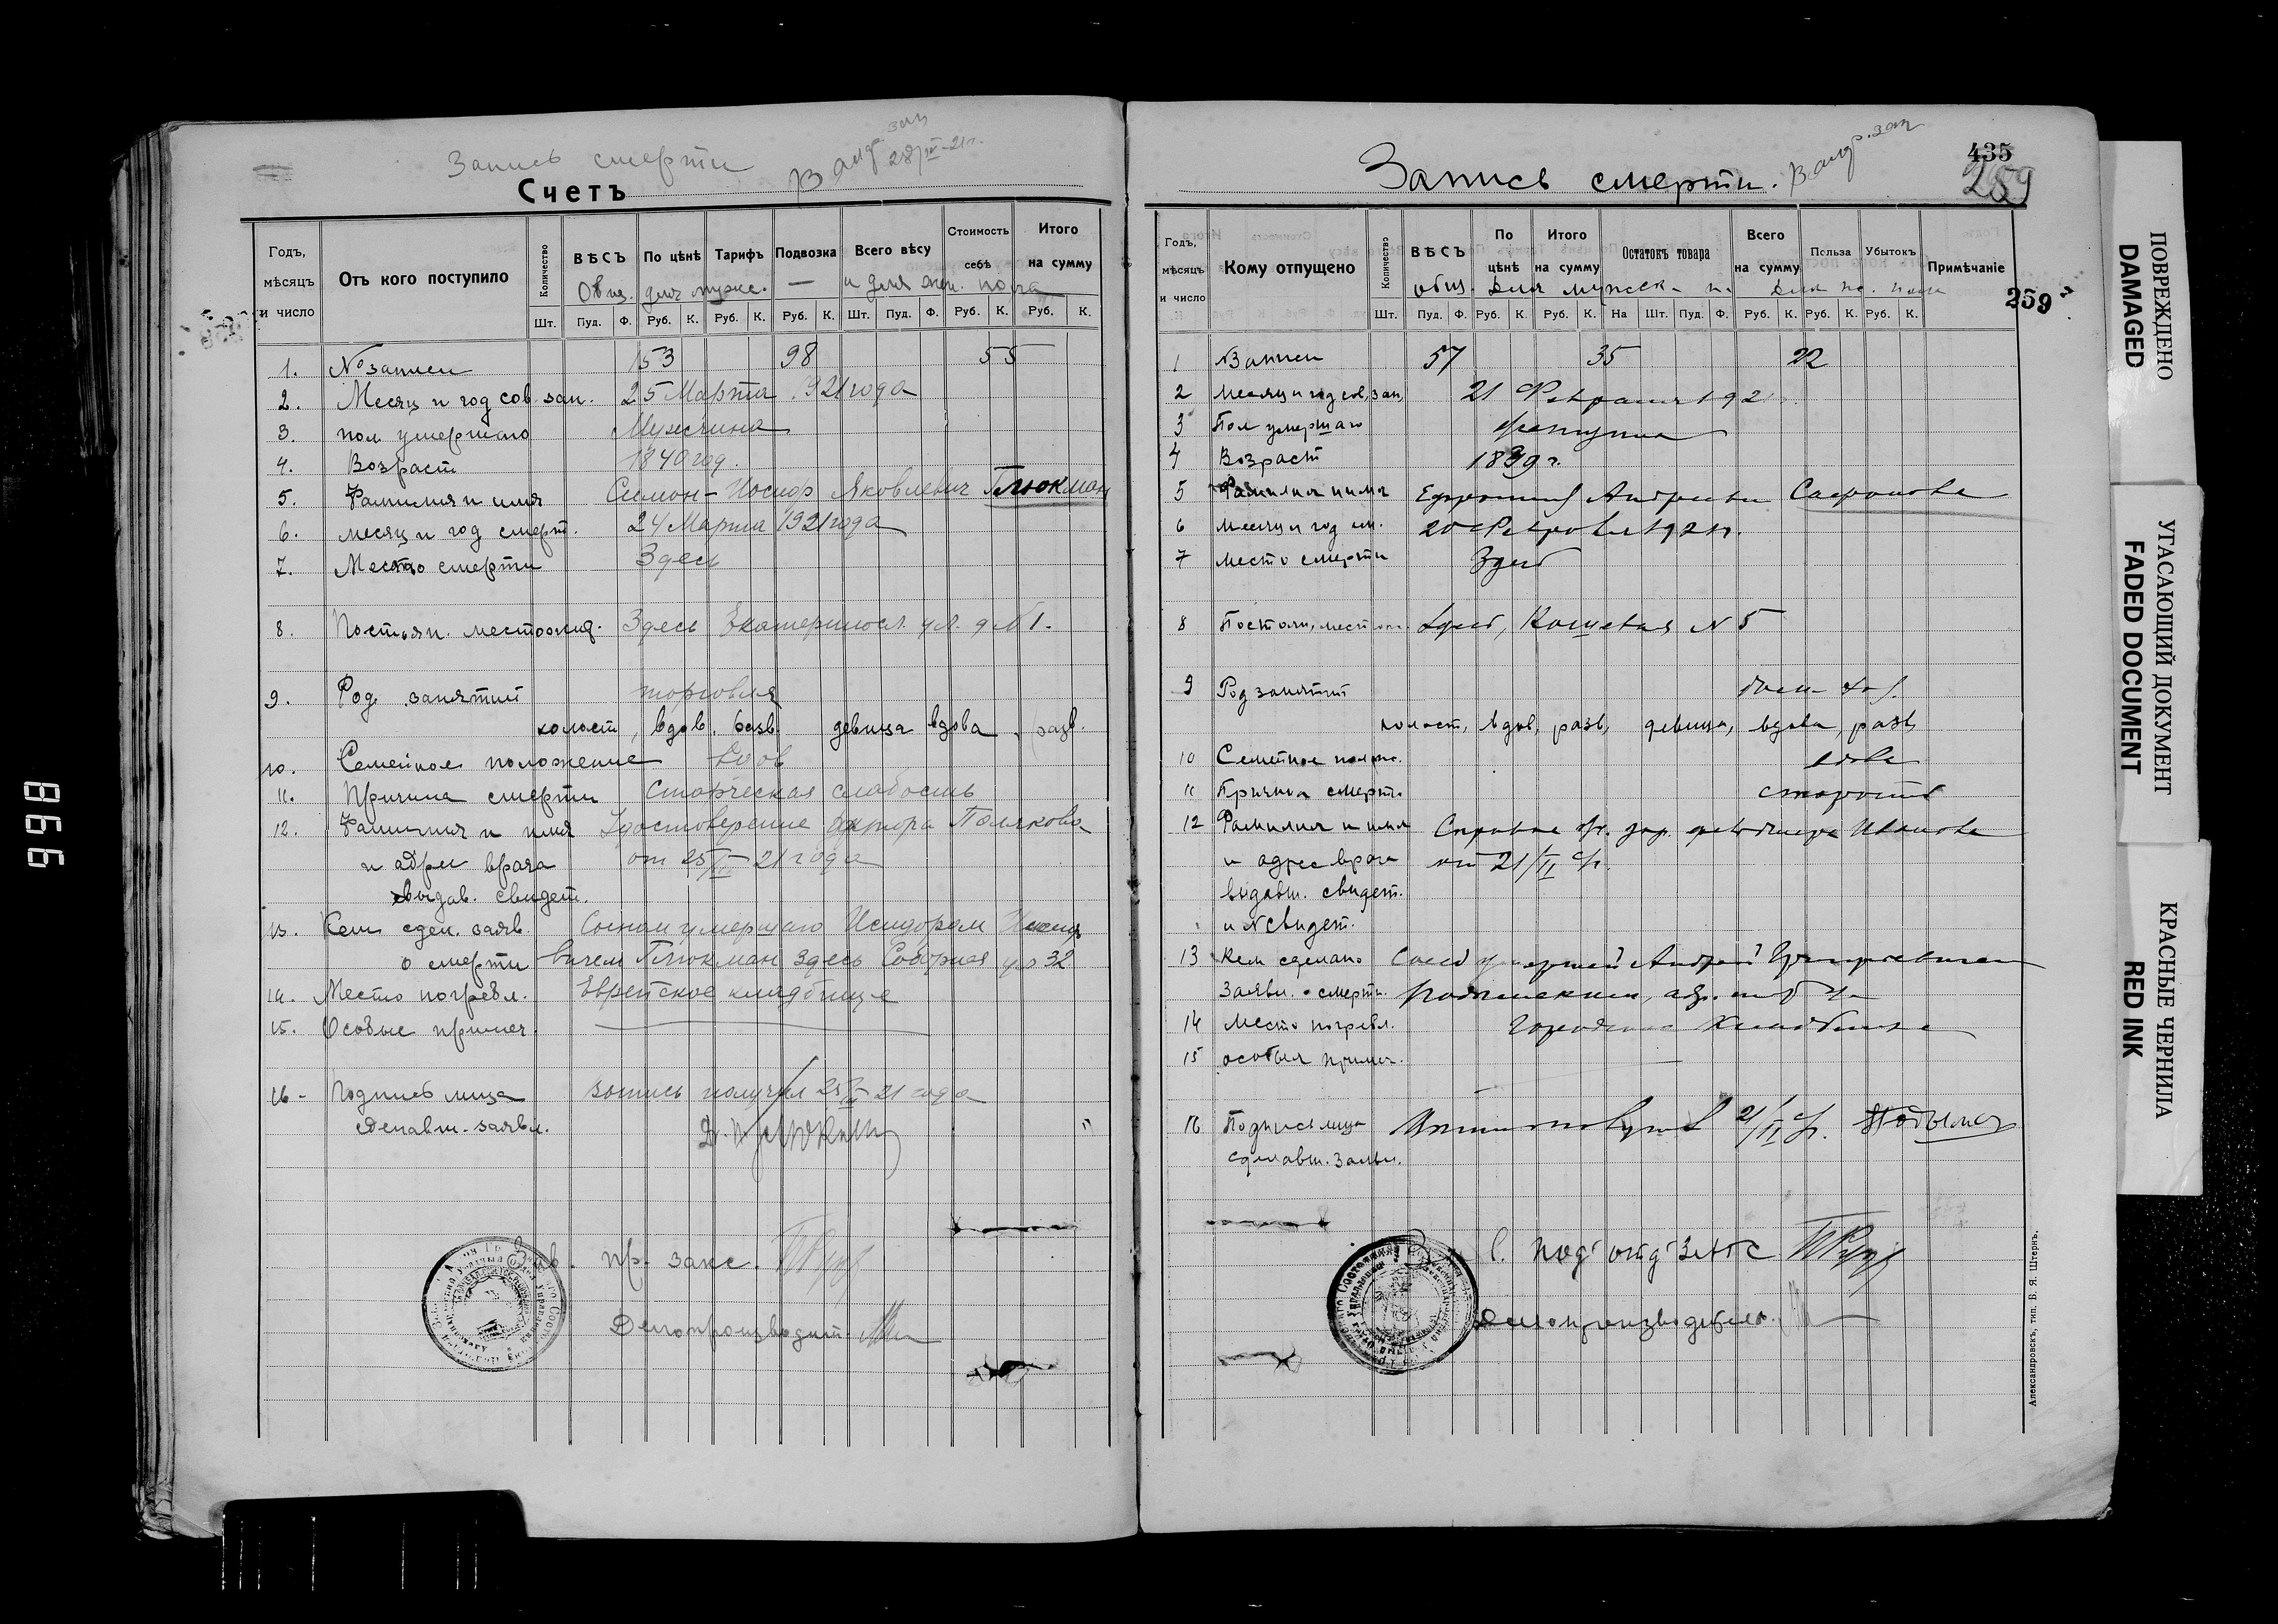 Запись смерти
Счетъ
Годъ, мѣсяцъ и число
Отъ кого поступило
Количество
ВѢСЪ
По цѣнѣ
Тарифъ
Подвозка
Всего вѣсу
Стоимость себѣ
Итого на сумму
для мужс. — и для жен. пола
Шт. Пуд. Ф. Руб. К. Руб. К. Руб. К. Шт. Пуд. Ф. Руб. К. Руб. К.
1. № записи 153 98 55
2. Месяц и год сов. зап. 25 Марта 1921 года
3. пол умершаго Мужчина
4. Возраст 1840 год.
5. Фамилия и имя Симон-Иосиф Яковлевич Глюкман
6. месяц и год смерт. 24 Марта 1921 года
7. Место смерти Здесь
8. Постоян. местожид. Здесь Екатериносл. ул. д № 1.
9. Род занятий торговля
холост, вдов. разв. девица вдова, разв.
10. Семейное положение вдов
11. Причина смерти Старческая слабость
12. Фамилия и имя Удостоверение доктора Полякова
и адрес врача от 25/III-21 года
выдав. свидет.
13. Кем сдел. заяв. Сыном умершаго Исидором
о смерти вичем Глюкман Здесь Соборная ул 32
14. Место погребл. Еврейское кладбище
15. Особые примеч.
16- Подпись лица запись получил 25/III 21 года
сделавш. заявл.
Зав. пр. загс.
Делопроизводит.
Запись смерти.
435
259
Годъ, мѣсяцъ и число
Кому отпущено
Количество
ВѢСЪ
По цѣнѣ
Итого на сумму
Остатокъ товара
Всего на сумму
Польза
Убытокъ
Примѣчаніе
259
общ. Для мужск. п.
Шт. Пуд. Ф. Руб. К. Руб. К. На Шт. Пуд. Ф. Руб. К. Руб. К. Руб. К.
1 № Записи 57 35 22
2 Месяц и год сов. зап. 21 Февраля 1921
3 Пол умершаго Женщина
4 Возраст 1839 г.
5 Фамилия и имя Андреевна Сафронова
6 Месяц и год см. 20 Февраля 1921 г.
7 Место смерти Здесь
8 Постоян. мест Здесь, Кошевая № 5
9 Род занятий
холост, вдов, разв, девица, вдова, разв,
10 Семейное полож. вдова
11 Причина смерти старость
12 Фамилия и имя Справка фельдшера Иванова
и адрес врача от 21/II
выдавш. свидет.
и № свидет.
13 Кем сделано умершей Андрей Григорьевичем
Заявл. о смерти
14 Место погребл. Городское Кладбище
15 особыя примеч.
16 Подпись лица 21/II
сделавш. Заявл.
под отд ЗАГС
Делопроизводитель
Александровскъ, тип. Б. Я. Штернъ.
ПОВРЕЖДЕНО
DAMAGED
УГАСАЮЩИЙ ДОКУМЕНТ
FADED DOCUMENT
КРАСНЫЕ ЧЕРНИЛА
RED INK